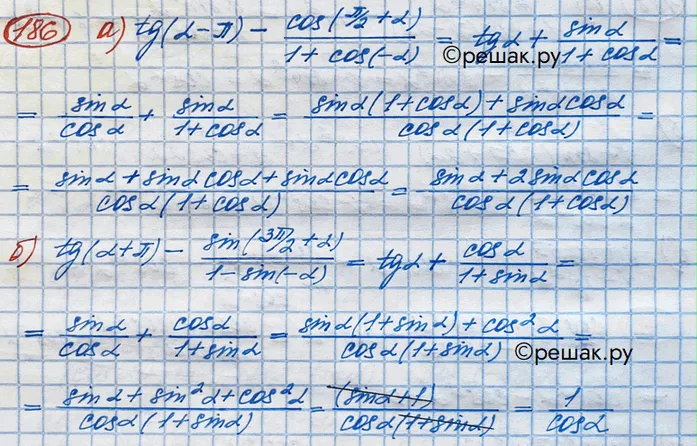 186 а) tg(α-π) - cos(π/2+α)/(1+cos(-α)) = tgα + sinα/(1+cosα) =
©решак.ру
= sinα/cosα + sinα/(1+cosα) = (sinα(1+cosα)+sinαcosα)/(cosα(1+cosα)) =
= (sinα+sinαcosα+sinαcosα)/(cosα(1+cosα)) = (sinα+2sinαcosα)/(cosα(1+cosα))
б) tg(α+π) - sin(3π/2+α)/(1-sin(-α)) = tgα + cosα/(1+sinα) =
= sinα/cosα + cosα/(1+sinα) = (sinα(1+sinα)+cos²α)/(cosα(1+sinα)) =
©решак.ру
= (sinα+sin²α+cos²α)/(cosα(1+sinα)) = (sinα+1)/(cosα(1+sinα)) = 1/cosα